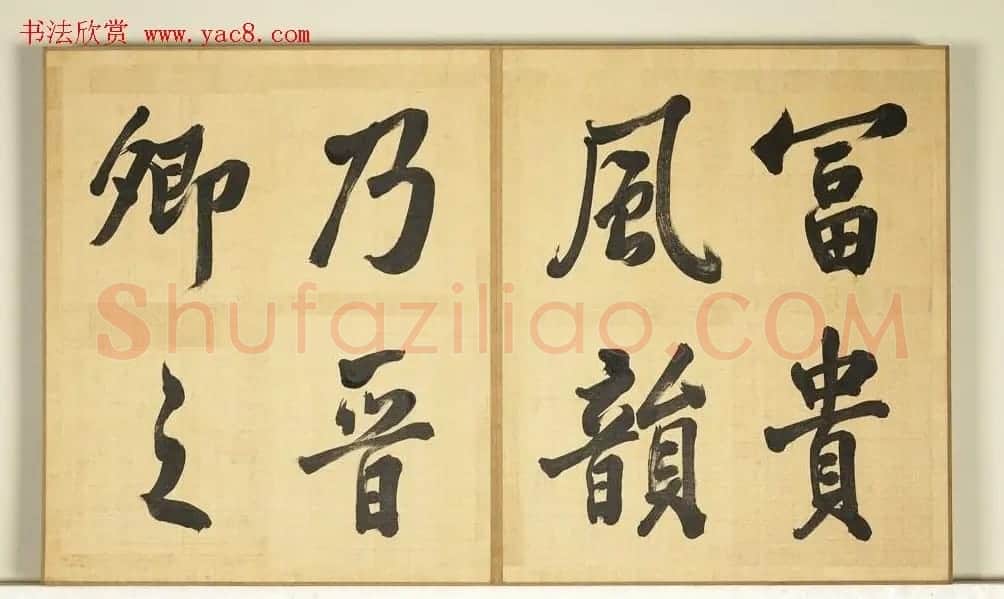 书法欣赏 www.yac8.com
富貴
風韻
乃晉
卿之
Shufaziliao.COM